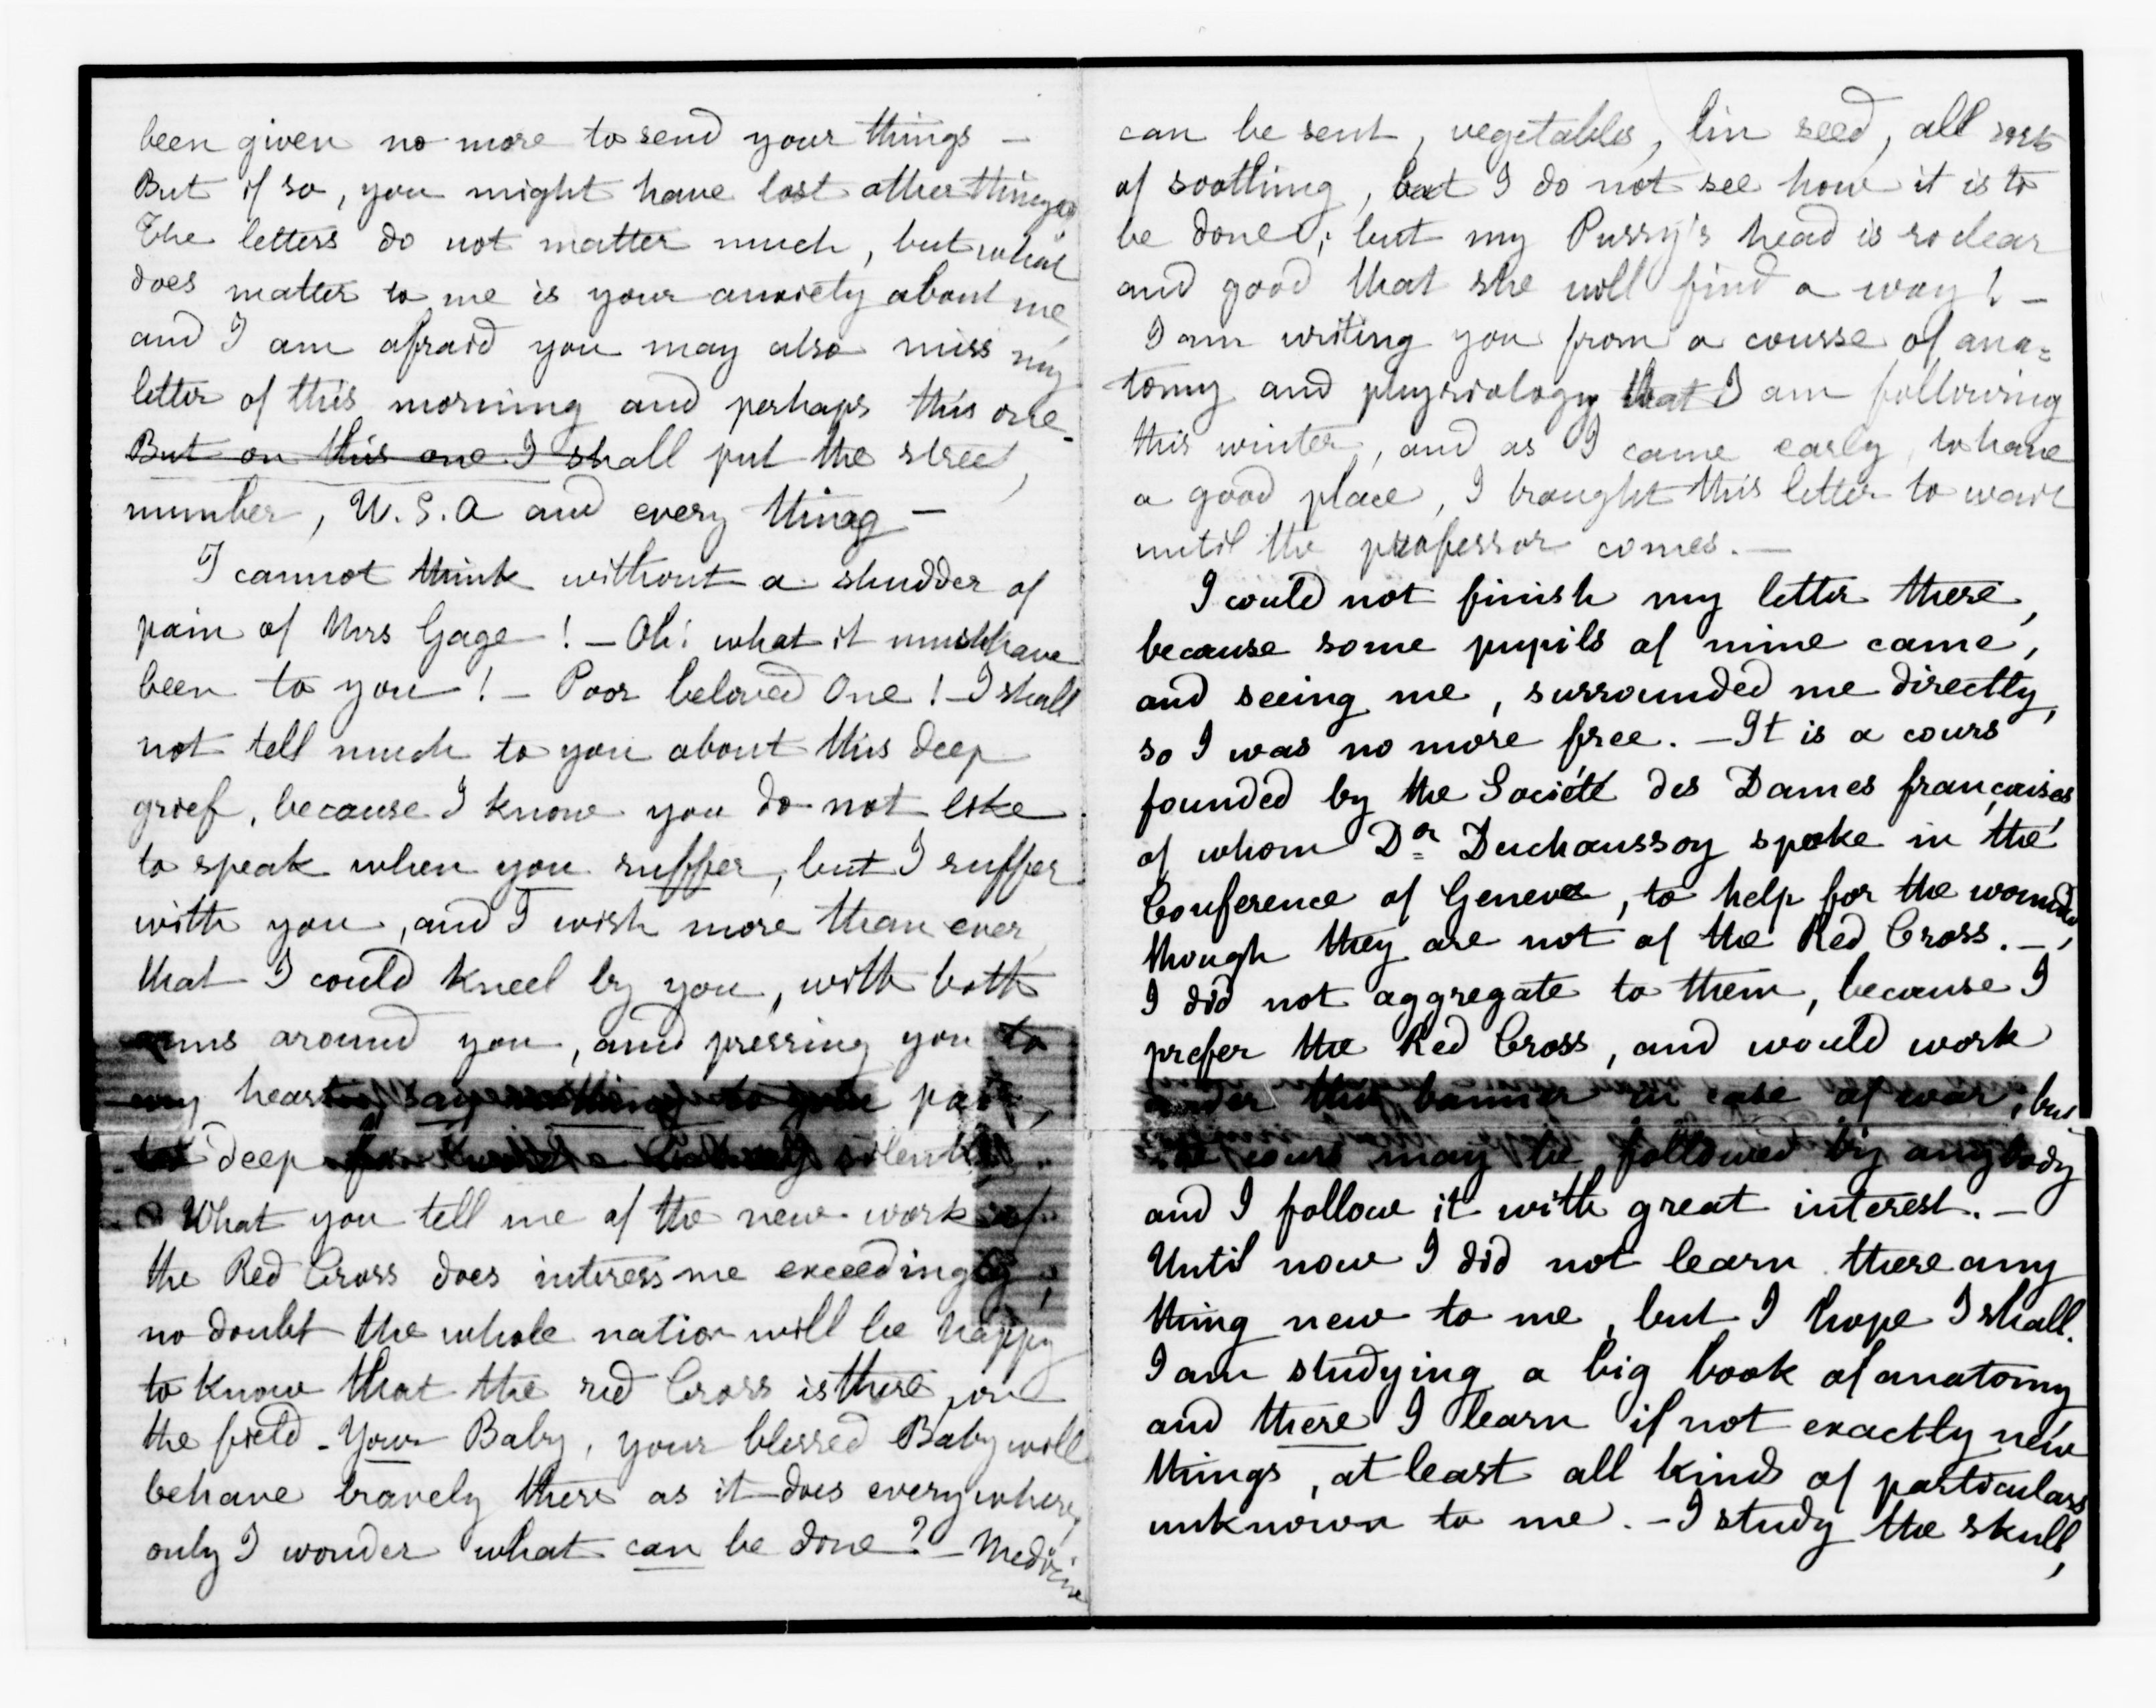 been given no more to send your things —
But if so, you might have lost other things
The letters do not matter much, but what
does matter to me is your anxiety about me
and I am afraid you may also miss my
letter of this morning and perhaps this one.
But on this one I shall put the street,
number, U.S.A and every thing —
I cannot think without a shudder of
pain of Mrs Gage! — Oh! what it must have
been to you! — Poor beloved One! — I shall
not tell much to you about this deep
grief, because I know you do not like
to speak when you suffer, but I suffer
with you, and I wish more than ever
that I could kneel by you, with both
arms around you, and pressing you to
my heart, say nothing to you
deep silently
What you tell me of the new work of
the Red Cross does interess me exceedingly,
no doubt the whole nation will be happy
to know that the red Cross is there, on
the field - Your Baby, your blessed Baby will
behave bravely there as it does everywhere,
only I wonder what can be done? - Medicine
can be sent, vegetables, lin seed, all sorts
of soothing, but I do not see how it is to
be done; but my Pussy's head is so clear
and good that she will find a way! —
I am writing you from a course of ana=
tomy and physiology that I am following
this winter, and as I came early to have
a good place, I brought this letter to wait
until the professor comes. —
I could not finish my letter there,
because some pupils of mine came,
and seeing me, surrounded me directly,
so I was no more free. — It is a cours
founded by the Société des Dames françaises
of whom Dor Duchaussoy spoke in the
Conference of Geneva, to help for the wounded,
though they are not of the Red Cross. —
I did not aggregate to them, because I
prefer the Red Cross, and would work
under this banner in case of war, but
cours may be followed by anybody
and I follow it with great interest. —
Until now I did not learn there any
thing new to me, but I hope I shall.
I am studying a big book of anatomy
and there I learn if not exactly new
things, at least all kinds of particulars
unknown to me. - I study the skull,